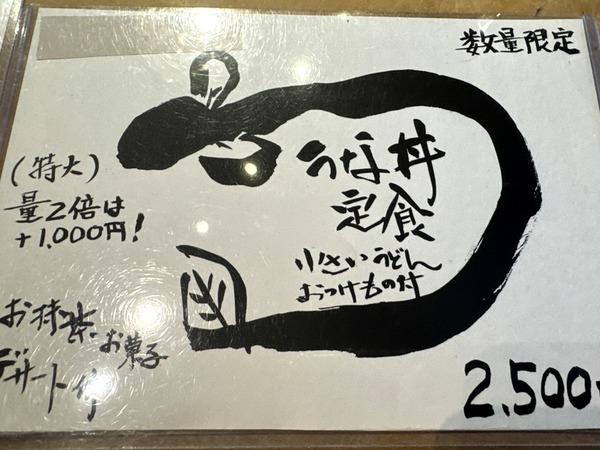 数量限定
うな丼
定食
小さいうどん
おつけもの付
(特大)
量2倍は
+1,000円!
お抹茶
お菓子
デザート付
2,500